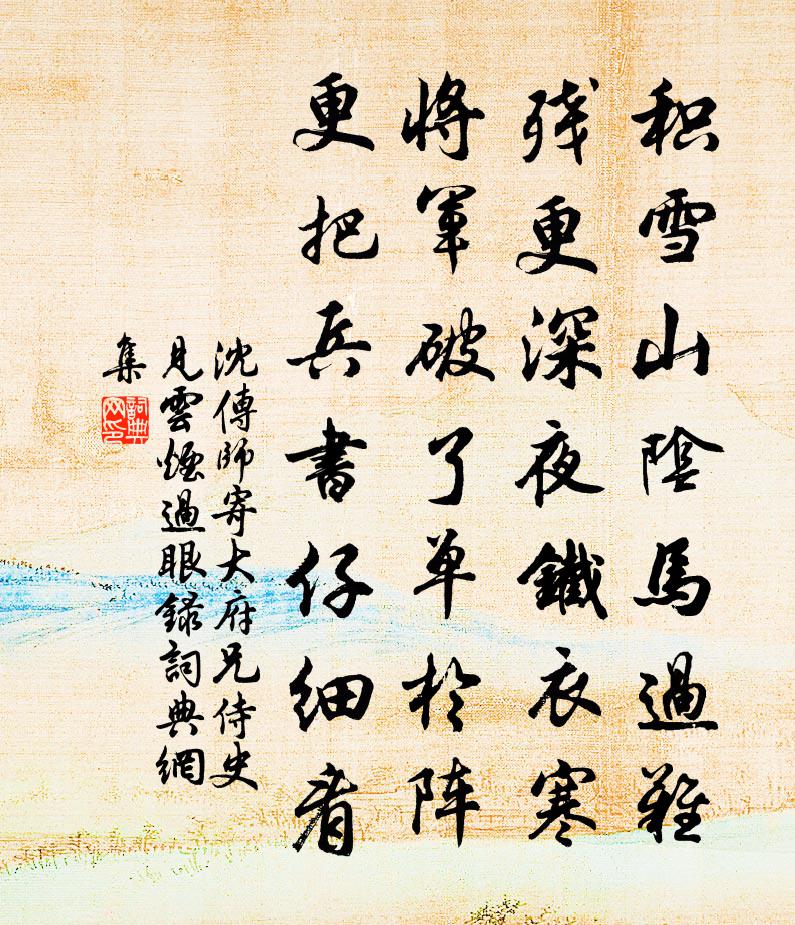 积雪山阴馬過難
残更深夜鐵衣寒
将軍破了单於阵
更把兵書仔细看
沈傳師寄大府兄侍史
見雲煙過眼録詞典網
集
詞典
网印